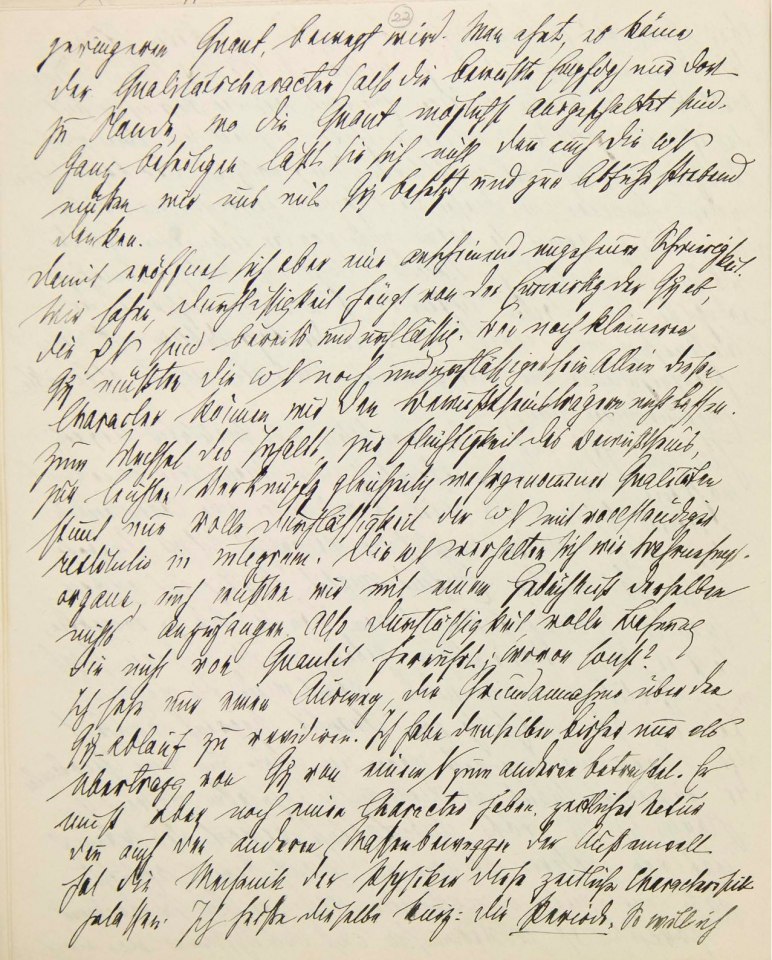 22
geringeren Quant, bewegt wird. Man ahnt, es käme
der Qualitätscharacter (also die bewußte Empfdg) nur dort
zu Stande, wo die Quant möglichst ausgeschaltet sind.
Ganz beseitigen läßt sie sich nicht denn auch die ωN
müßen wir uns mit Qή besetzt und zur Abfuhr strebend
denken.
Damit eröffnet sich aber eine anscheinend ungeheure Schwierigkeit.
Wir sahen, Durchlässigkeit hängt von der Einwirkg der Qή ab,
die ψN sind bereits undurchlässig. Bei noch kleineren
Qή müßten die ωN noch undurchlässiger sein Allein diesen
Character können wir den Bewußtseinsträgern nicht lassen.
Zum Wechsel des Inhalts, zur Flüchtigkeit des Bewußtseins,
zur leichten Verknüpfg gleichzeitig wahrgenommener Qualitäten
stimmt nur volle Durchlässigkeit der ωN mit vollständiger
restitutio in integrum. Die ωN verhalten sich wie Wahrnehmgs-
organe, auch wüßten wir mit einem Gedächtniß derselben
nichts anzufangen Also Durchlässigkeit, volle Bahnung
die nicht von Quantit herrührt; wovon sonst?
Ich sehe nur einen Ausweg, die Grundannahme über den
Qή-ablauf zu revidiren. Ich habe denselben bisher nur als
Übertragg von Qή von einem N zum anderen betrachtet. Er
muß aber noch einen Character haben, zeitlicher Natur
denn auch den anderen Massenbeweggen der Außenwelt
hat die Mechanik der Physiker diese zeitliche Characteristik
gelassen. Ich heiße dieselbe kurz: die Periode. So will ich